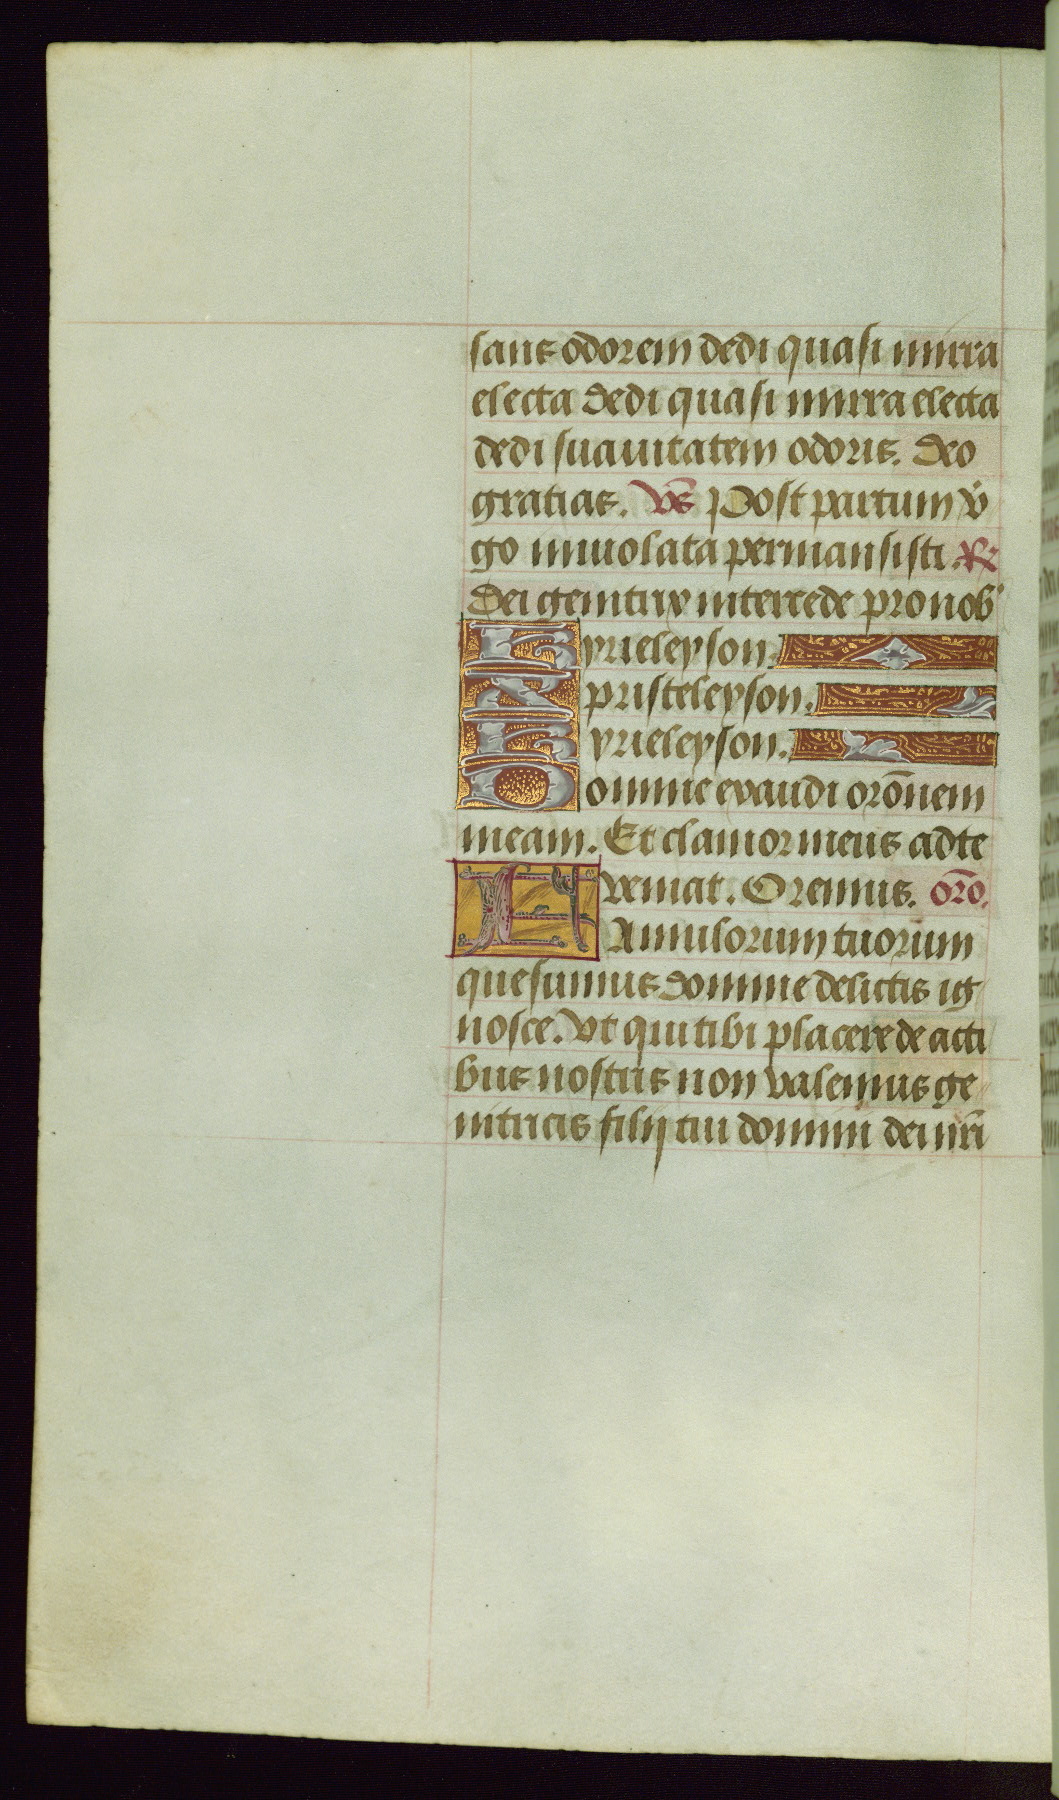 sans odorem dedi quasi mirra
electa dedi quasi mirra electa
dedi suauitatem odoris. Deo
gratias. V̄s Post partum v̇
go inuiolata permansisti. R⁊
Dei genitrix intercede pro nob'
Kyrieleyson.
Xpristeleyson.
Kyrieleyson.
Domine exaudi orōnem
meam. Et clamor meus ad te
veniat. Oremus. orō.
FAmulorum tuorum
quesumus domine delictis ig
nosce. Vt qui tibi placere de acti
bus nostris non valemus ge
nitricis filij tui domini dei nr̄i